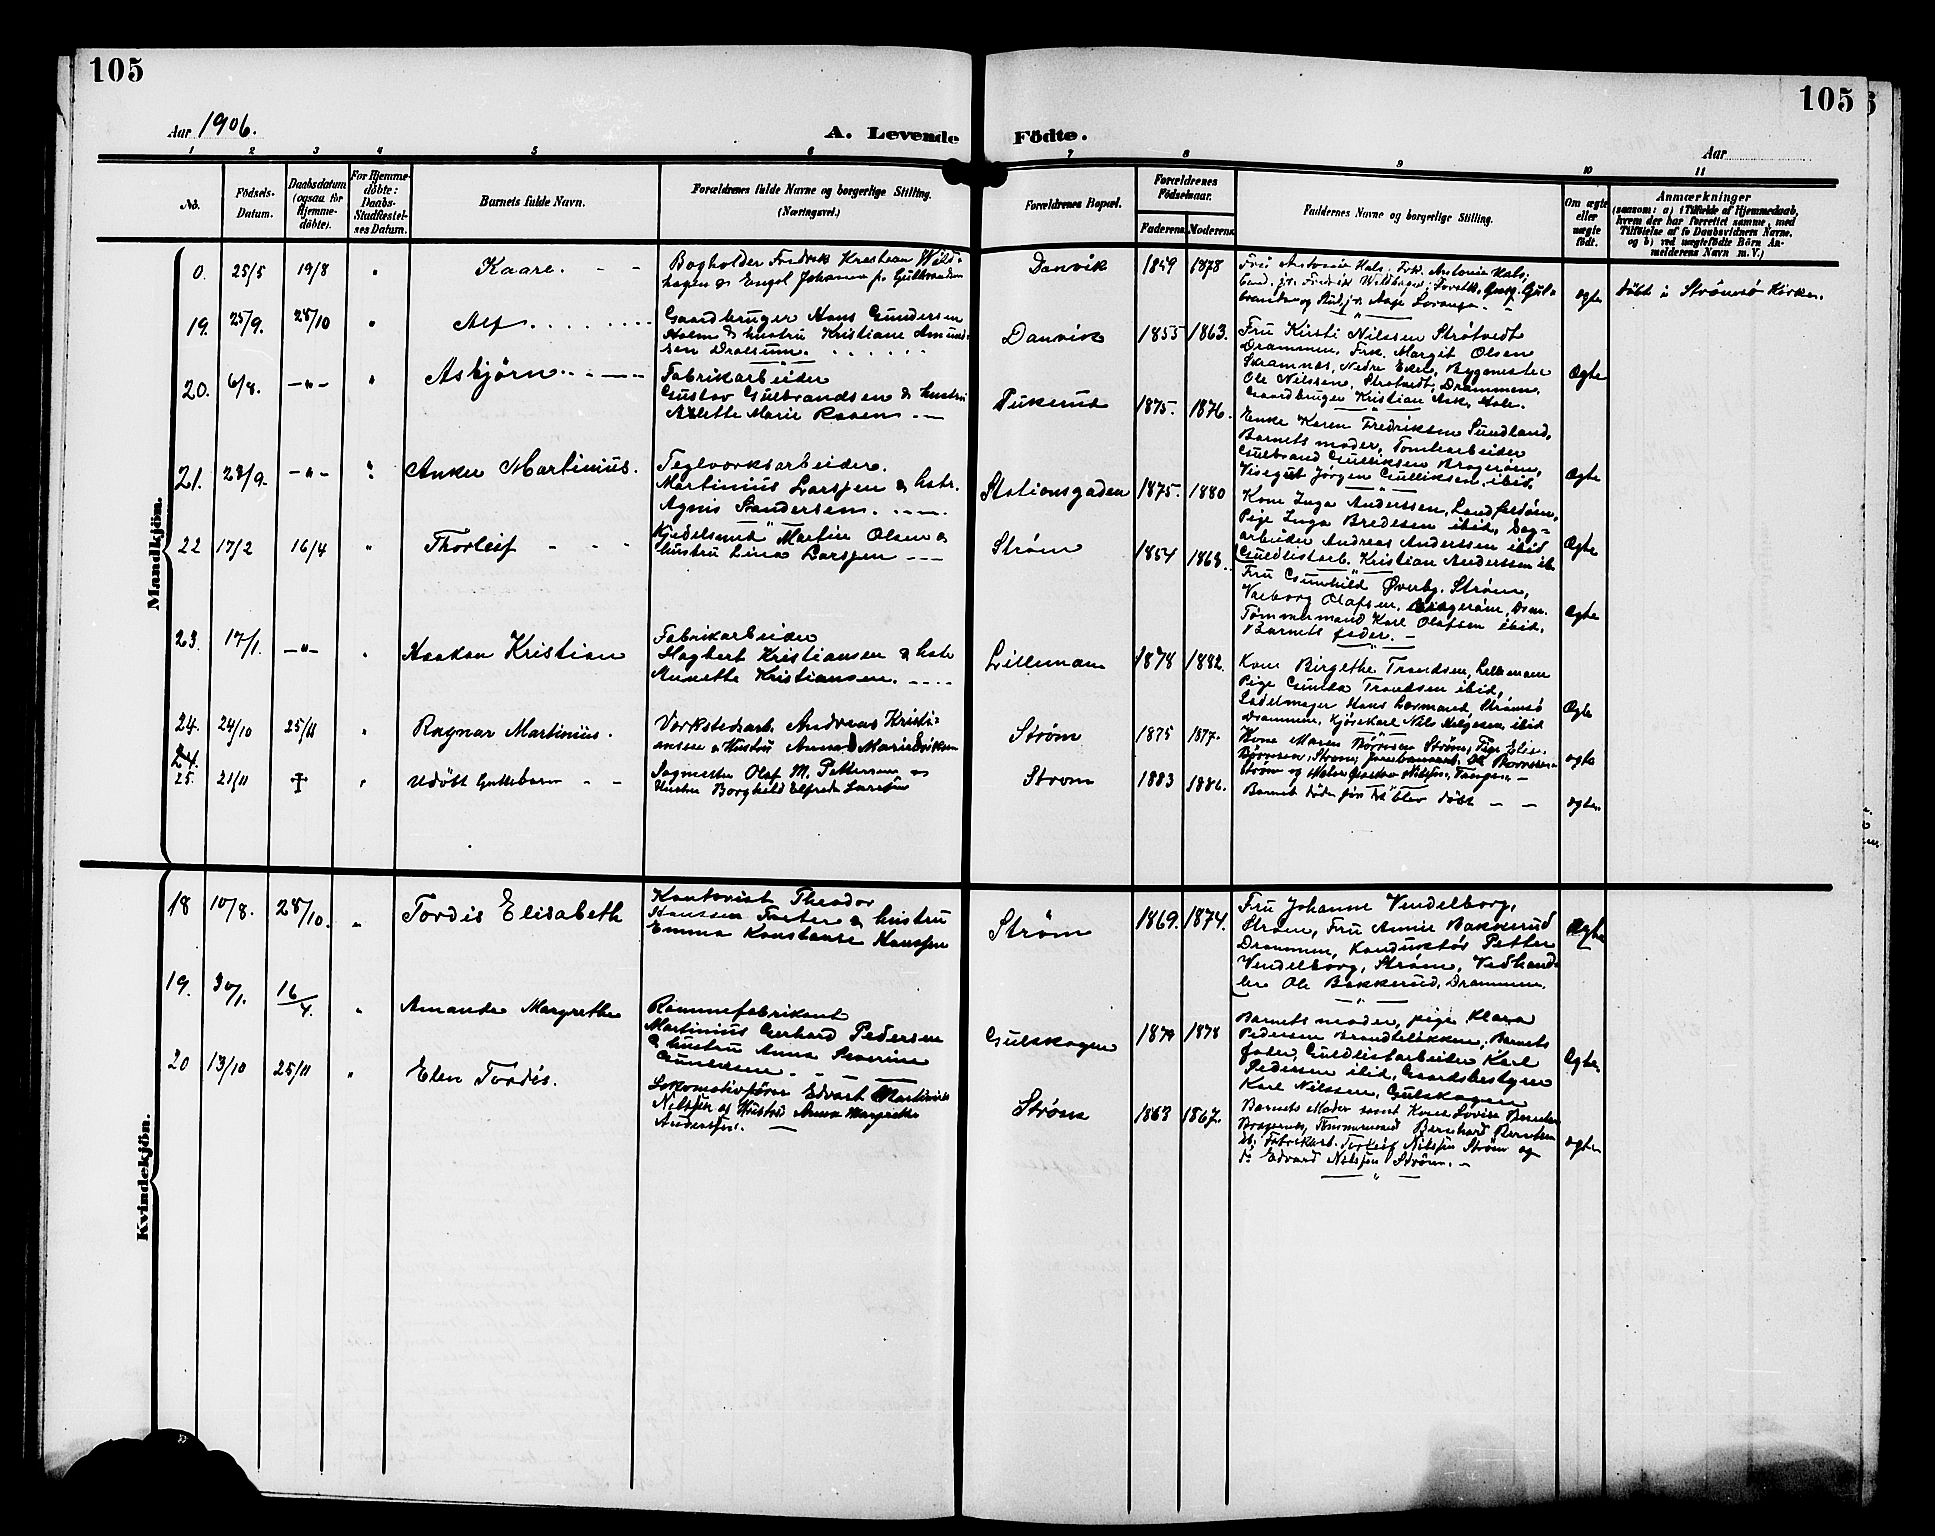 105
105
Aar 1906.
A. Levende Födte.
Aar
1 2 3 4 5 6 7 8 9 10 11
No.
Födsels-
Datum.
Daabsdatum
(ogsaa for
Hjemme-
döbte).
For Hjemme-
döbte:
Daabs-
Stadfæstel-
ses Datum.
Barnets fulde Navn.
Forældrenes fulde Navne og borgerlige Stilling.
(Næringsvei.)
Forældrenes Bopæl.
Forældrenes
Födselsaar.
Faderens Moderens
Faddernes Navne og borgerlige Stilling.
Om ægte
eller
uægte
födt.
Anmærkninger
(saasom: a) i Tilfælde af Hjemmedaab,
hvem der har forrettet samme, med
Tilföielse af to Daabsvidners Navne,
og b) ved uægtefödte Börn An-
melderens Navn m. V.)
Mandkjön.
0. 25/5 19/8 " Kaare. - -
Bogholder Fredrik Kristian Wild-
hagen & Engel Johanna f. Gulbrandsen
Danvik 1859 1878
Fru Antonie Hals, Frk. Antonie Hals,
ægte
döbt i Strömsö Kirke.
19. 25/9. 28/10 " Alf
Gaardbruger Hans Gundersen
Holm & hustru Kristiane Amund-
sen Dralsum.
Danvik 1855 1863.
Fru Kirsti Nilssen Strötvedt
Drammen, Frk. Margit Olsen
Skramnæs, Nedre Eker, Bygmester
Ole Nilssen, Strøtvedt, Drammen,
Gaardbruger Kristian Ask, Hole.
Ægte
20. 6/8. -"- " Asbjörn
Fabrikarbeider
Gustav Gulbrandsen & hustru
Marie Raaen
Pukerud 1875. 1876.
Enke Karen Fredriksen Sundland,
Barnets moder, Tomtearbeider
Gulbrand Gulliksen Bragerøen,
Visegut Jörgen Gulliksen, ibid.
Ægte
21. 23/9. -"- " Anker Martinius.
Teglværksarbeider.
Martinius Larssen & hstr.
Agnis Sandersen.
Stationsgaden 1875. 1880
Kone Inga Anderssen, Landfaldöen,
Pige Inga Bredesen ibid, Dag-
arbeider Andreas Anderssen ibid
Guldlistarb. Kristian Anderssen ib.
Ægte
22 17/2 16/4 " Thorleif - -
Kjedelsmed Martin Olsen &
hustru Lina Larssen
Ström 1854 1863.
Fru Gunhild Øverby, Ström,
Valborg Olafsen, Dram.
Tömmermand Karl Olafsen ibid,
Barnets fader.
Ægte
23. 17/1. -"- " Haakon Kristian
Fabrikarbeider
Hagbert Kristiansen & hstr
Annette Kristiansen.
Lilleman 1878 1882.
Kone Birgethe Trondsen, Lilleman
Pige Gunda Trondsen ibid,
Sadelmager Hans Strømsö
Drammen, Kjörekarl Nils Helgesen ibid
Ægte
24. 24/10 25/11 " Ragnar Martinius.
Værkstedsarb. Andreas Kristi-
ansen & Hustru Anna Marie Eriksen
Ström 1875 1877.
Kone Maren Börresen Ström, Pige Elise
Börresen, Ström, Ole Börresen
Ström og Maler Gustav Nilssen, Tangen.
ægte
24.
25. 21/11 † " Udöbt Guttebarn - -
Sagmester Olaf M. Pettersen og
Hustru Borghild Elfreda Larssen
Ström 1883 1886.
Barnet döde för det blev döbt - -
ægte
Kvindekjön.
18 10/8. 28/10. " Tordis Elisabeth
Kontorist Theodor
Hanssen Tveter & hustru
Emma Konstanse Hanssen
Ström 1869. 1874.
Fru Johanne Vendelborg,
Ström, Fru Annie Bakkerud
Drammen, Konduktör Petter
Vendelborg, Ström, Vedhand-
ler Ole Bakkerud, Drammen.
Ægte
19. 30/1. 16/4. " Amanda Margrethe
Rammefabrikant
Martinius Gerhard Pedersen
& hustru Anna Severine
Gundersen.
Gulskogen 1879 1878
Barnets moder, pige Klara
Pedersen Brandtelökken, Barnets
fader, Guldlistarbeider Karl
Pedersen ibid, Gaardsbestyrer
Karl Nilssen, Gulskogen
Ægte
20 13/10 25/11 " Elen Tordis.
Lokomotivförer Edvart Martinius
Nilssen og Hustru Anna Margrethe
Anderssen.
Ström 1863 1867.
Barnets Moder samt Kone Lovise Berntsen
Bragernes, Tömmermand Bernhard Berntsen
ib., Fabrikarb. Torleif Nilssen Ström og
do Edvard Nilssen Ström.
ægte